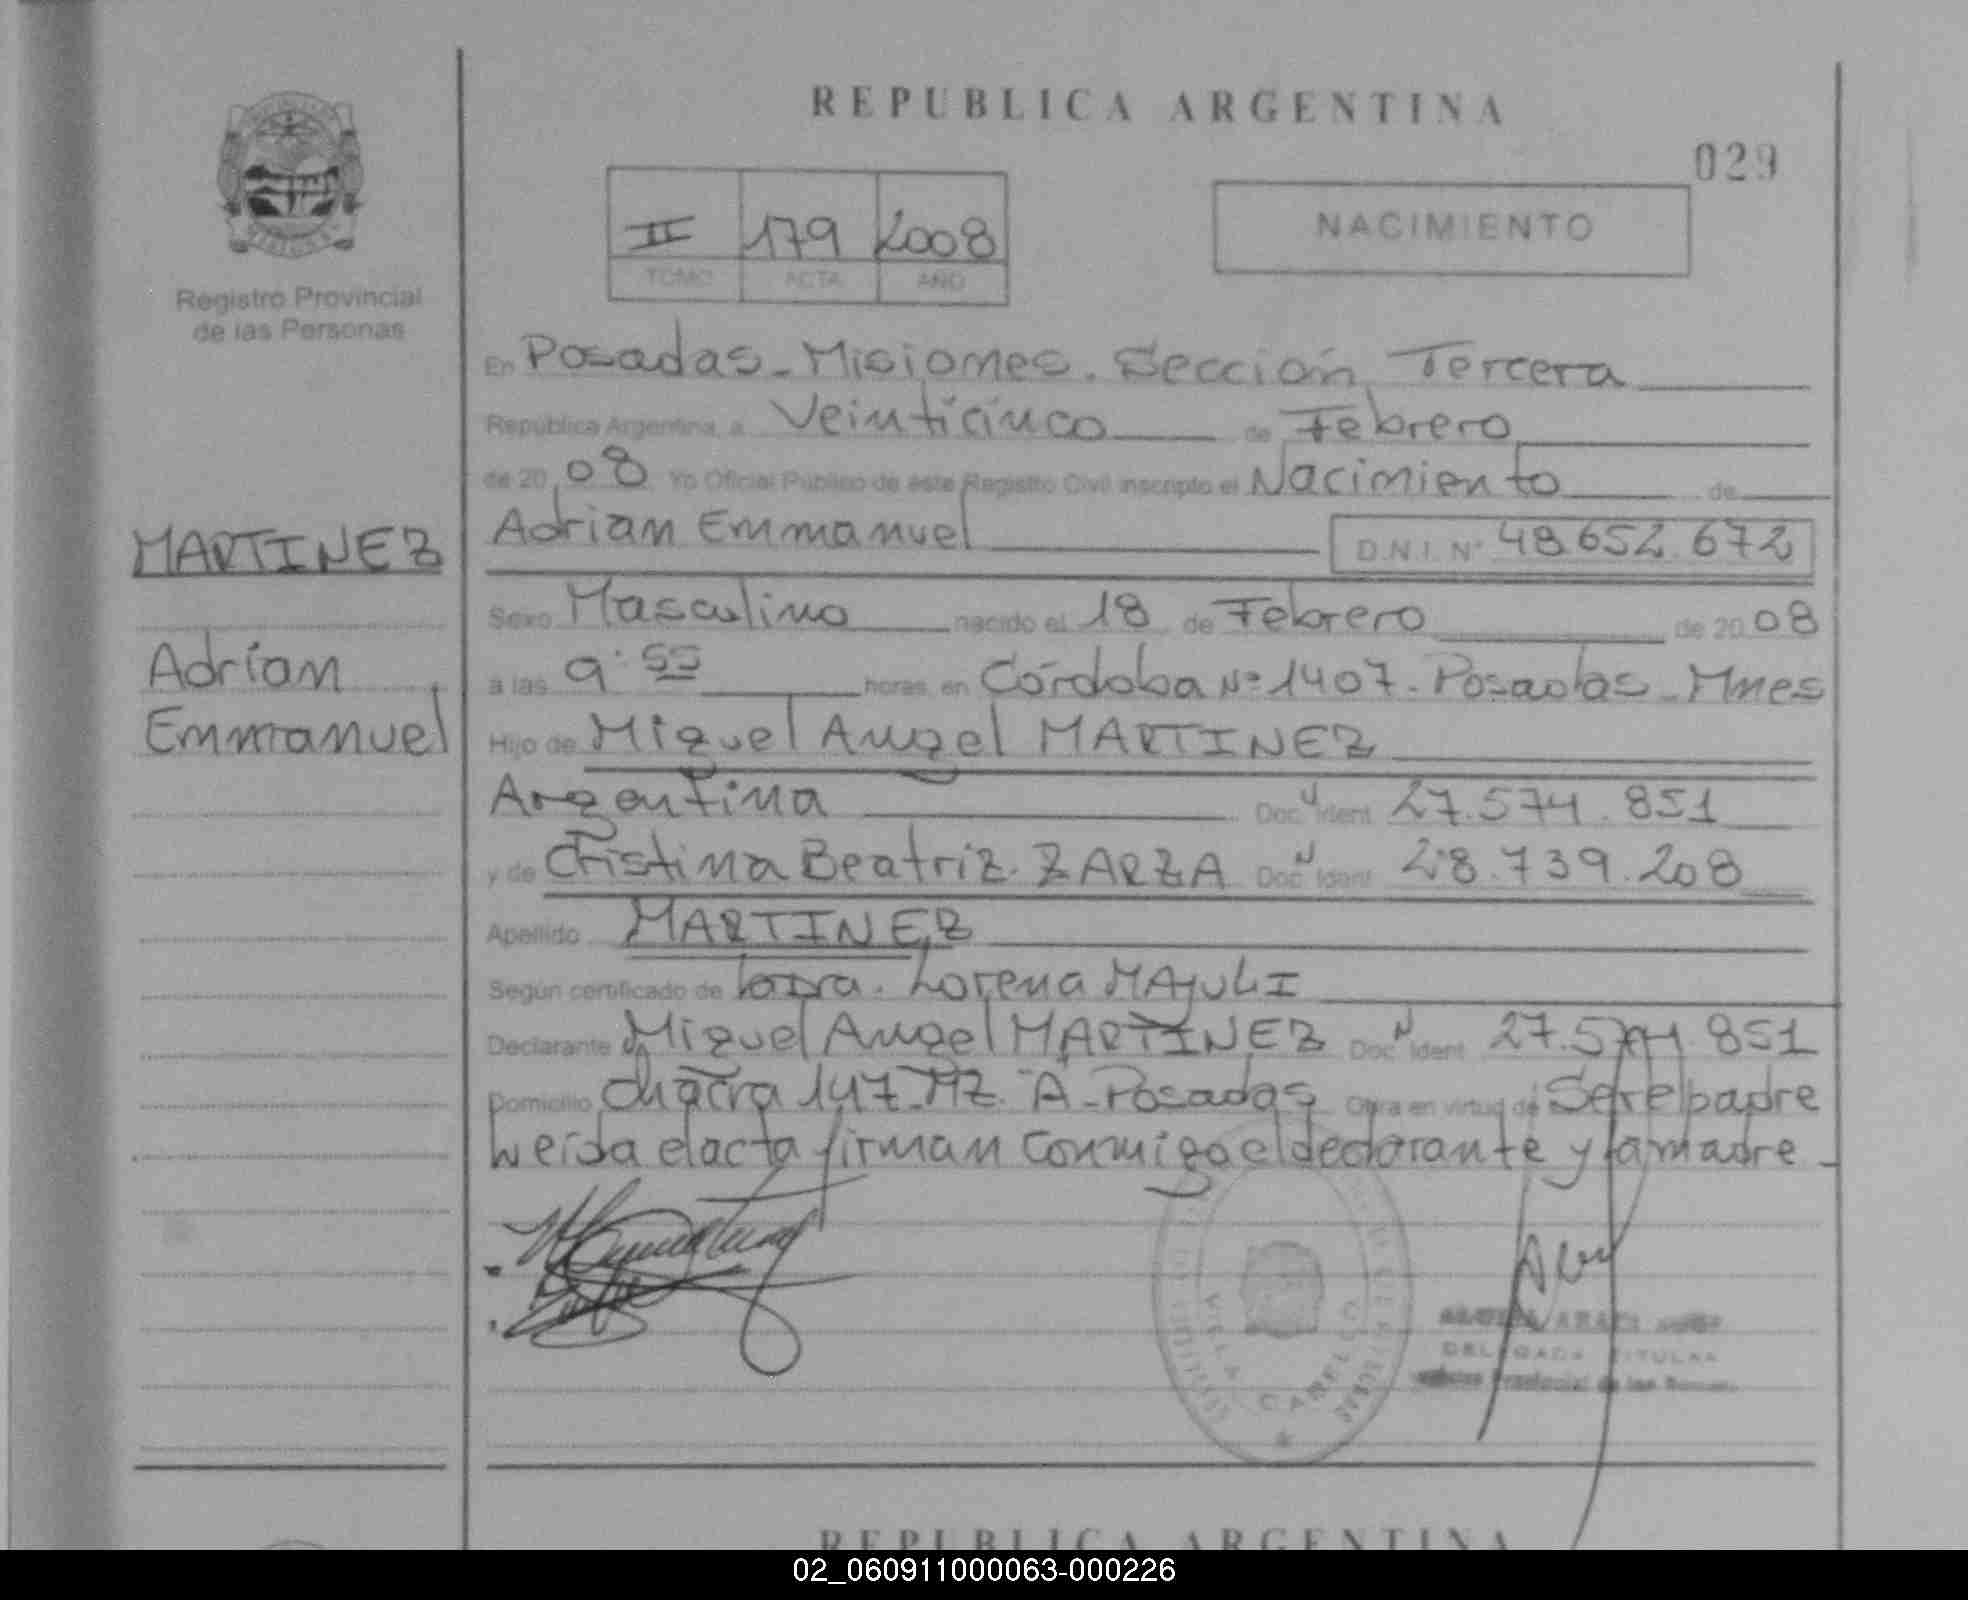 REPUBLICA ARGENTINA
029
II 179 2008
TOMO ACTA AÑO
NACIMIENTO
Registro Provincial
de las Personas
En Posadas - Misiones. Sección Tercera
República Argentina, a Veinticinco de Febrero
de 20 08 Yo Oficial Público de este Registro Civil inscripto el Nacimiento de
MARTINEZ
Adrian Emmanuel D.N.I. Nº 48.652.672
Sexo Masculino nacido el 18 de Febrero de 20 08
Adrian
Emmanuel
a las 9:55 horas, en Córdoba Nº 1407 - Posadas - Mnes
Hijo de Miguel Angel MARTINEZ
Argentina Doc. Ident 27.574.851
y de Cristina Beatriz ZARZA Doc. Ident 28.739.208
Apellido MARTINEZ
Según certificado de Lorena MAJULI
Declarante Miguel Angel MARTINEZ Doc. Ident 27.574.851
Domicilio Chacra 147 - MZ. "A - Posadas Obra en virtud de Ser el padre
Leida el acta firman conmigo el declarante y la madre -
DELEGADA TITULAR
REPUBLICA ARGENTINA
02_060911000063-000226